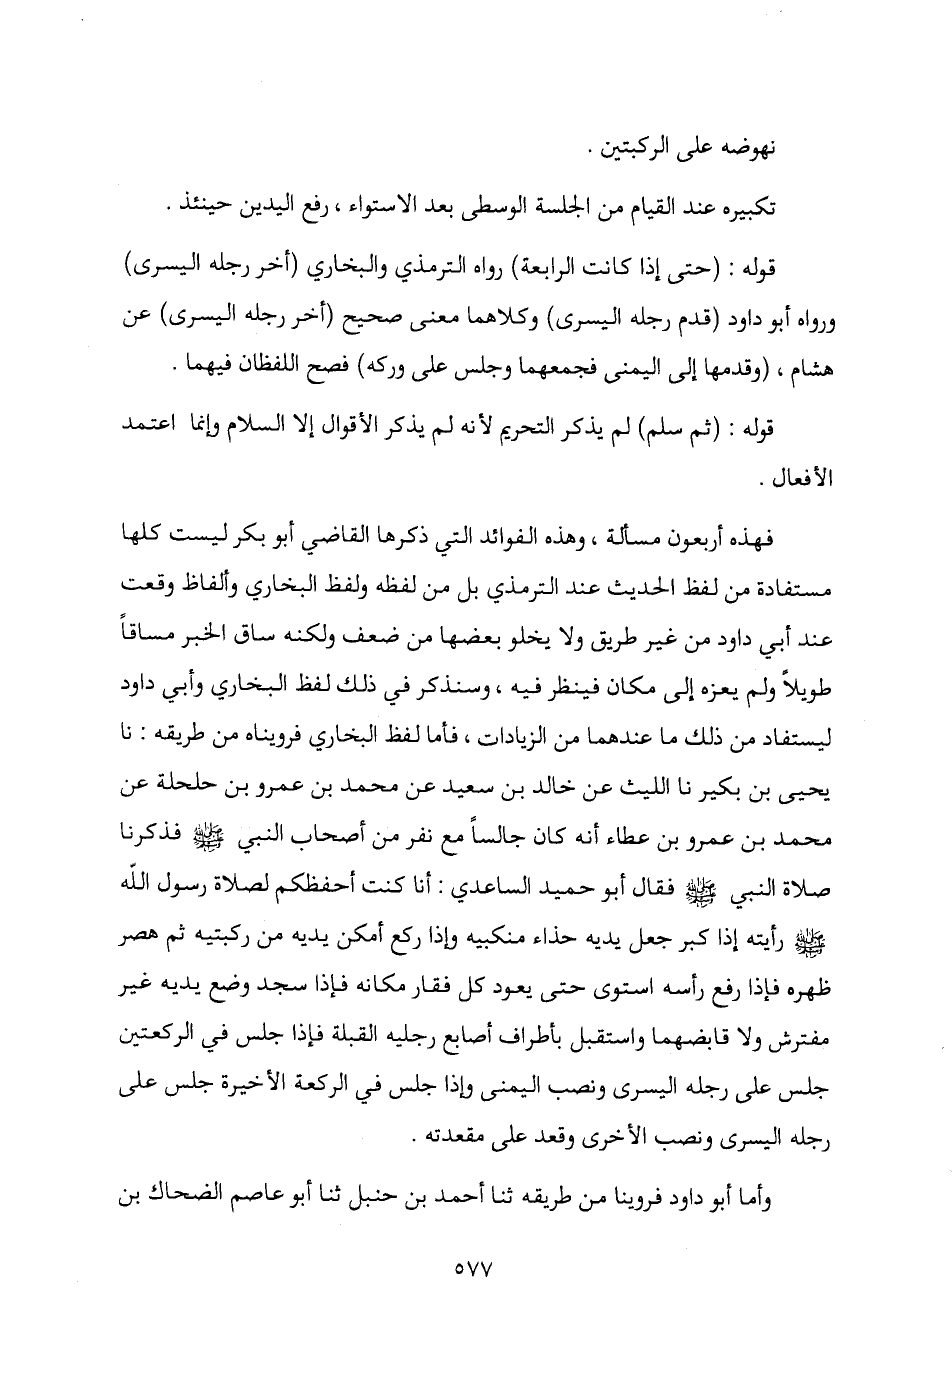 نهوضه على الركبتين .
تكبيره عند القيام من الجلسة الوسطى بعد الاستواء ، رفع اليدين حينئذ .
قوله : (حتى إذا كانت الرابعة) رواه الترمذي والبخاري (أخر رجله اليسرى)
ورواه أبو داود (قدم رجله اليسرى) وكلاهما معنى صحيح (أخر رجله اليسرى) عن
هشام ، (وقدمها إلى اليمنى فجمعهما وجلس على وركه) فصح اللفظان فيهما .
قوله : (ثم سلم) لم يذكر التحريم لأنه لم يذكر الأقوال إلا السلام وإنما اعتمد
الأفعال .
فهذه أربعون مسألة ، وهذه الفوائد التي ذكرها القاضي أبو بكر ليست كلها
مستفادة من لفظ الحديث عند الترمذي بل من لفظه ولفظ البخاري وألفاظ وقعت
عند أبي داود من غير طريق ولا يخلو بعضها من ضعف ولكنه ساق الخبر مساقاً
طويلاً ولم يعزه إلى مكان فينظر فيه ، وسنذكر في ذلك لفظ البخاري وأبي داود
ليستفاد من ذلك ما عندهما من الزيادات ، فأما لفظ البخاري فرويناه من طريقه : نا
يحيى بن بكير نا الليث عن خالد بن سعيد عن محمد بن عمرو بن حلحلة عن
محمد بن عمرو بن عطاء أنه كان جالساً مع نفر من أصحاب النبي ﷺ فذكرنا
صلاة النبي ﷺ فقال أبو حميد الساعدي : أنا كنت أحفظكم لصلاة رسول اللّه
ﷺ رأيته إذا كبر جعل يديه حذاء منكبيه وإذا ركع أمكن يديه من ركبتيه ثم هصر
ظهره فإذا رفع رأسه استوى حتى يعود كل فقار مكانه فإذا سجد وضع يديه غير
مفترش ولا قابضهما واستقبل بأطراف أصابع رجليه القبلة فإذا جلس في الركعتين
جلس على رجله اليسرى ونصب اليمنى وإذا جلس في الركعة الأخيرة جلس على
رجله اليسرى ونصب الأخرى وقعد على مقعدته .
وأما أبو داود فروينا من طريقه ثنا أحمد بن حنبل ثنا أبو عاصم الضحاك بن
٥٧٧